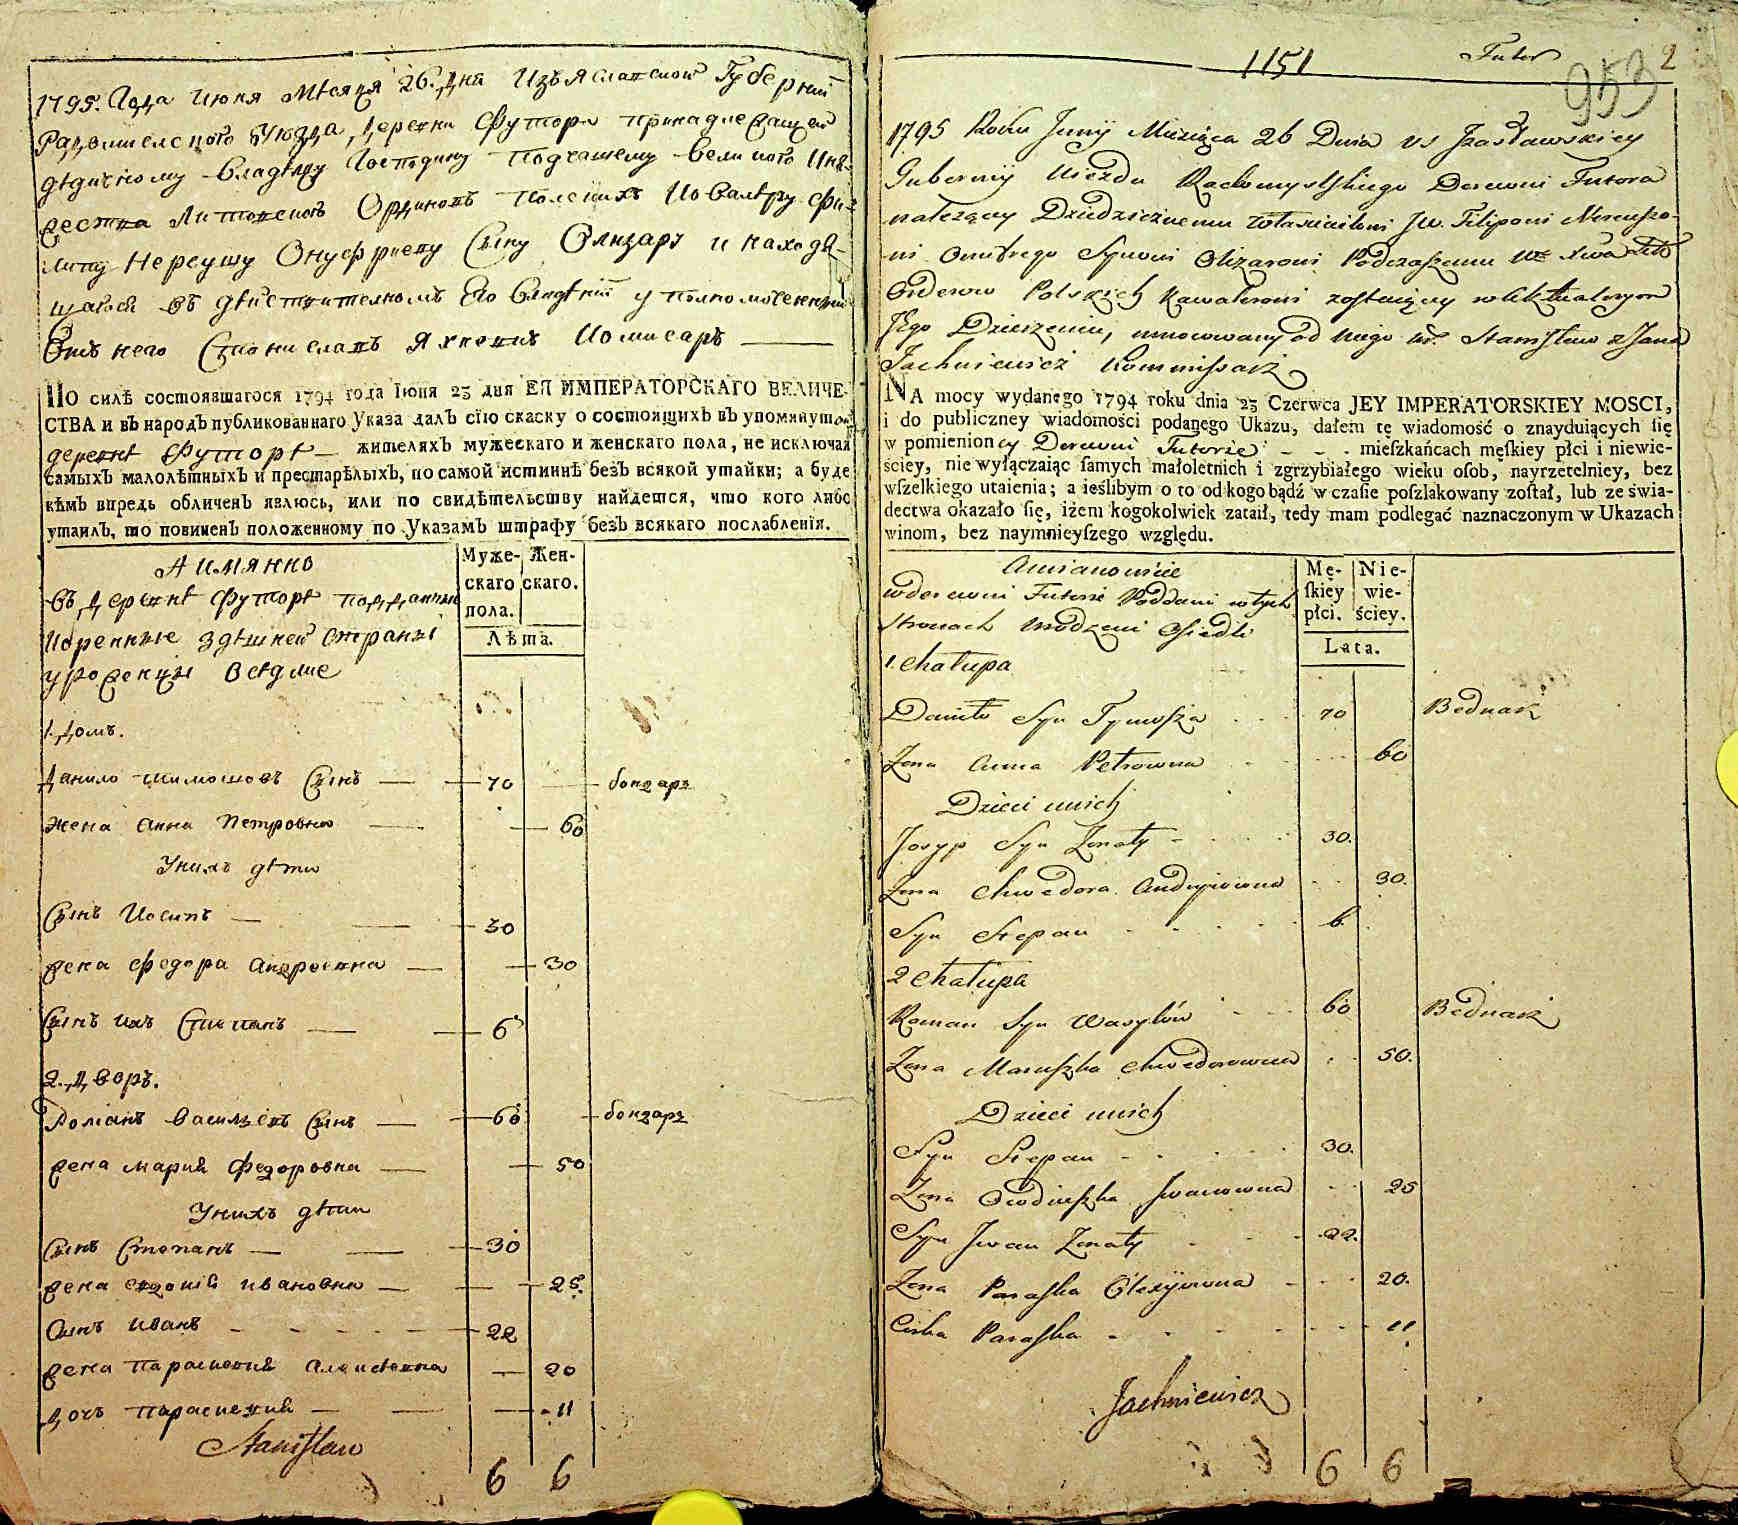 1795. Года Июня мѣсяца 26. дня Изъяславской Губерніи
Радомысел­скаго уѣзда, деревни Футора принадлежащей
дѣдичному владѣлцу Господину Подчашему великого Кня-
жества Литовскаго Ординовъ полскихъ Кавалѣру Фи-
липу Нереушу Онуфриеву Сыну Олизару и находя-
щаюся въ дѣйствителномъ Его владѣніи уполномоченный
Отъ него Станиславъ Яхневичъ Комисаръ
ПО силѣ состоявшагося 1794 года Іюня 23 дня ЕЯ ИМПЕРАТОРСКАГО ВЕЛИЧЕ-
СТВА и въ народъ публикованнаго Указа далъ сію скаску о состоящихъ въ упомянутой
деревнѣ Футорѣ жителяхъ мужескаго и женскаго пола, не исключая
самыхъ малолѣтныхъ и престарѣлыхъ, по самой истиннѣ безъ всякой утайки; а буде
кѣмъ впредь обличенъ явлюсь, или по свидѣтельству найдется, что кого либо
утаилъ, то повиненъ положенному по Указамъ штрафу безъ всякаго послабленія.
А имянно
Муже- Жен-
скаго скаго.
пола.
Лѣта.
въ деревнѣ Футорѣ подданные
коренные здѣшней страны
уроженцы
1. Домъ.
Данило Тимошовъ Сынъ 70 бондаръ
жена Анна Петровна 60
У нихъ дѣти
Сынъ Иосипъ 30
жена Федора Андреевна 30
Сынъ ихъ Степанъ 6
2. Дворъ.
Романъ Василievъ Сынъ 60 бондаръ
жена Мария Федоровна 50
У нихъ дѣти
Сынъ Степанъ 30
жена Евдокия Ивановна 25.
Сынъ Иванъ 22
жена Парасковия Алексѣевна 20
дочъ Парасковия 11
Stanisław
6 6
1151 Futor 953 2
1795 Roku Junÿ Miesiąca 26 Dnia w Izasławskiey
Guberniÿ Uiezdu Radomyslskiego Derewni Futora
należący Dziedzicznemu własicielowi JW. Filiponi Nereuszo-
wi Onufrego Synowi Olizarowi Podczaszemu
Orderow Polskich Kawalerowi zostaiący w Aktualnym
Jego Dzierzeniu, umocowany od niego Stanisław z Jana
Jachniewicz Kommissarz
NA mocy wydanego 1794 roku dnia 23 Czerwca JEY IMPERATORSKIEY MOSCI,
i do publiczney wiadomości podanego Ukazu, dałem tę wiadomość o znayduiących ſię
w pomienioney Derewni Futorze - - . mieſzkańcach męſkiey płci i niewie-
ściey, nie wyłączaiąc ſamych małoletnich i zgrzybiałego wieku oſob, nayrzetelniey, bez
wſzelkiego utaienia; a ieślibym o to od kogo bądź w czaſie poſzlakowany zoſtał, lub ze świa-
dectwa okazało ſię, iżem kogokolwiek zataił, tedy mam podlegać naznaczonym w Ukazach
winom, bez naymnieyſzego względu.
Amianowicie
Mę- Nie-
ſkiey wie-
płci. ściey.
Lata.
w derewni Futorze Poddani w tych
stronach urodzeni Osiedli
1. Chałupa
Daniło Syn Tymosza 70 Bednarz
Żona Anna Petrowna 60
Dzieci unich
Josyp Syn Żonaty 30.
Żona Chwedora Andryiowna 30.
Syn Stepan 6.
2 Chałupa
Roman Syn Wasylów 60 Bednarz
Żona Maruszka Chwedorowna 50.
Dzieci unich
Syn Stepan 30.
Żona Owdiuszka Iwanowna 25
Syn Iwan Żonaty 22.
Żona Paraska Olexÿowna 20.
Córka Paraska 11
Jachniewicz
6 6